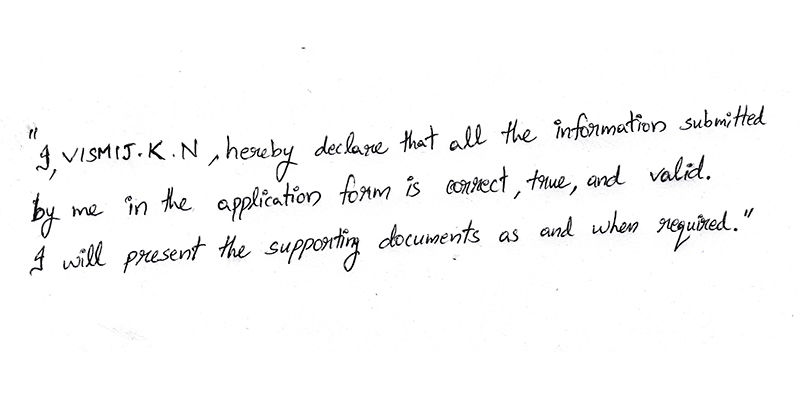 "I, VISMIJ.K.N, hereby declare that all the information submitted
by me in the application form is correct, true, and valid.
I will present the supporting documents as and when required."